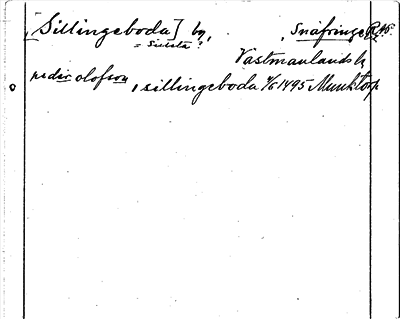 [Sillingeboda] by, , Snäfringe R. 45.
= Sicista?
Västmanlands l.
peder olofson, sillingeboda 4/6 1495 Munktorp